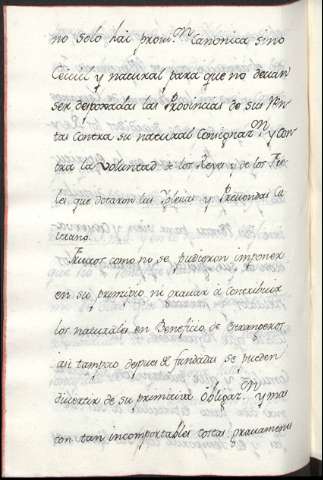 no solo hai proui.on Canonica sino
Ceuil y natural para que no deuan
ser despojadas las Prouincias de sus Ren
tas contra su natural Consignaz.on y con
tra la Voluntad de los Reyes y de los Fie
les que dotaron las Iglesias y
como no se pudieron imponer
en su principio ni grauar à contribuir
los naturales en Beneficio de Estrangeros
asi tampoco depues de fundadas se pueden
diuertir de su primitiua obligaz.on y mas
con tan incomportables costas grauamenes